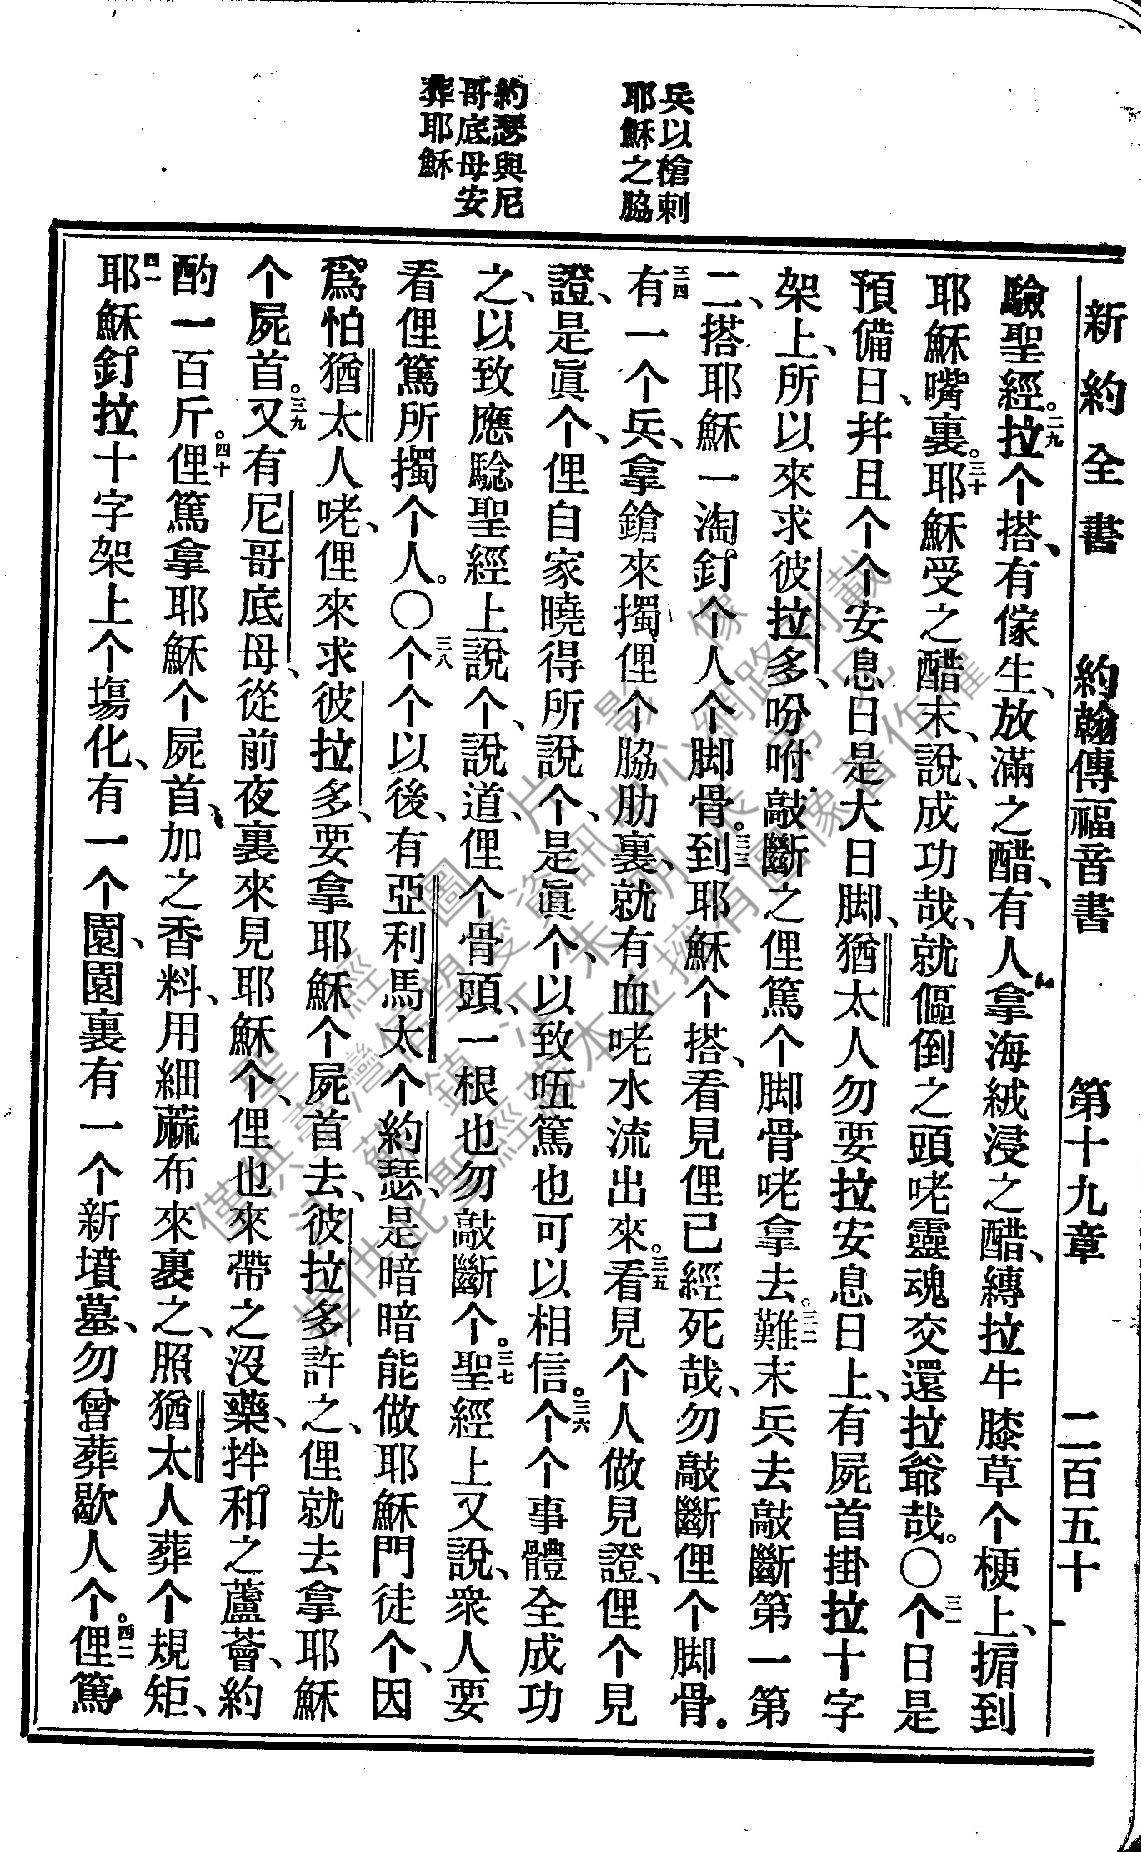 新約全書 約翰傳福音書 第十九章 二百五十
兵以槍刺
耶穌之脇
約瑟與尼
哥底母安
葬耶穌
驗聖經。二九拉个搭、有傢生、放滿之醋、有人拿海絨浸之醋、縛拉牛膝草个梗上、搢到
耶穌嘴裏。三十耶穌受之醋末、說、成功哉、就傴倒之頭咾靈魂交還拉爺哉。〇三一个日是
預備日、幷且个个安息日是大日脚、猶太人勿要拉安息日上、有屍首掛拉十字
架上、所以來求彼拉多、吩咐敲斷之俚篤个脚骨咾拿去。三二難末兵去敲斷第一第
二、搭耶穌一淘釘个人个脚骨。三三到耶穌个搭、看見俚已經死哉、勿敲斷俚个脚骨。
三四有一个兵、拿鎗來擉俚个脇肋裏、就有血咾水流出來。三五看見个人做見證、俚个見
證、是眞个、俚自家曉得所說个、是眞个、以致㕶篤也可以相信。三六个个事體全成功
之、以致應驗聖經上說个、說道、俚个骨頭、一根也勿敲斷个。三七聖經上又說、衆人要
看俚篤所擉个人。〇三八个个以後、有亞利馬太个約瑟、是暗暗能做耶穌門徒个、因
爲怕猶太人咾、俚來求彼拉多、要拿耶穌个屍首去、彼拉多許之、俚就去拿耶穌
个屍首。三九又有尼哥底母、從前夜裏來見耶穌个、俚也來帶之沒藥、拌和之蘆薈、約
酌一百斤。四十俚篤拿耶穌个屍首、加之香料、用細蔴布來裹之、照猶太人葬个規矩、
四一耶穌釘拉十字架上个塲化、有一个園、園裏有一个新墳墓、勿曾葬歇人个。四二俚篤